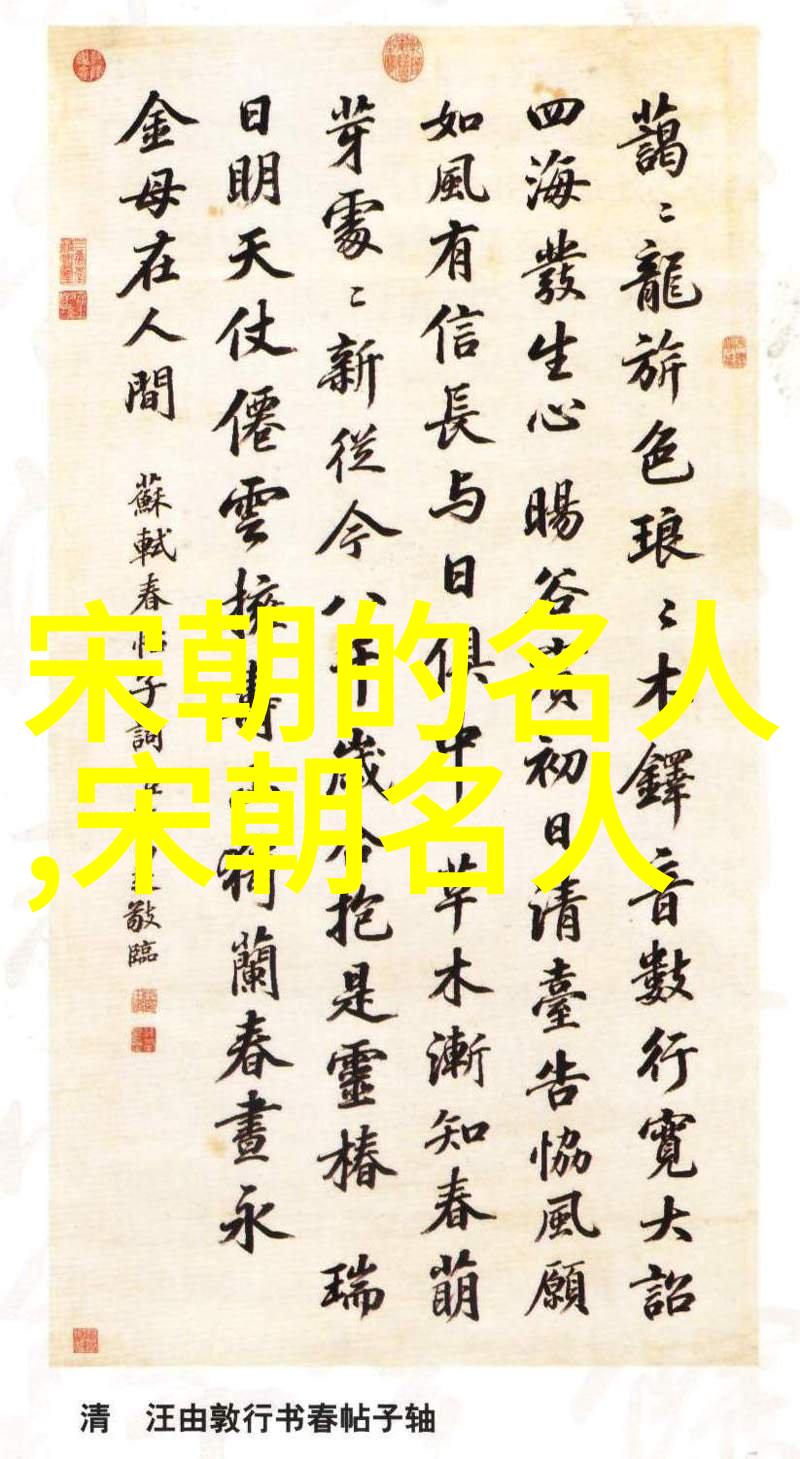 藹〻龍旂色琅〻木鐸音數行寬大詔
四海發生心 暘谷賓初日清臺告協風願
如風有信長与日俱中 草木漸知春萌
芽處〻新從今八千歲合抱是靈椿 瑞
日明天仗僊雲擁壽山猗蘭春晝永
金母在人間
蘇軾春帖子詞 敬臨
宋朝的名人
,宋朝名人
清 汪由敦行书春帖子轴